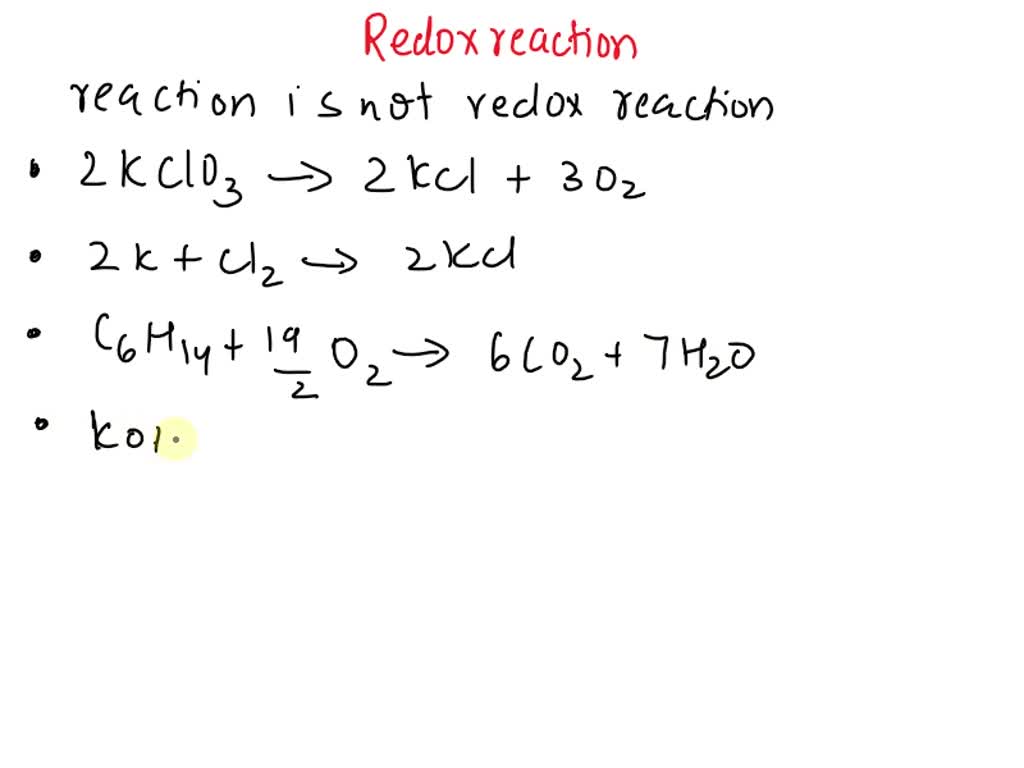 Redox reaction
reaction is not redox reaction
• 2KClO3 → 2KCl + 3O2
• 2K + Cl2 → 2KCl
• C6H14 + 19/2 O2 → 6CO2 + 7H2O